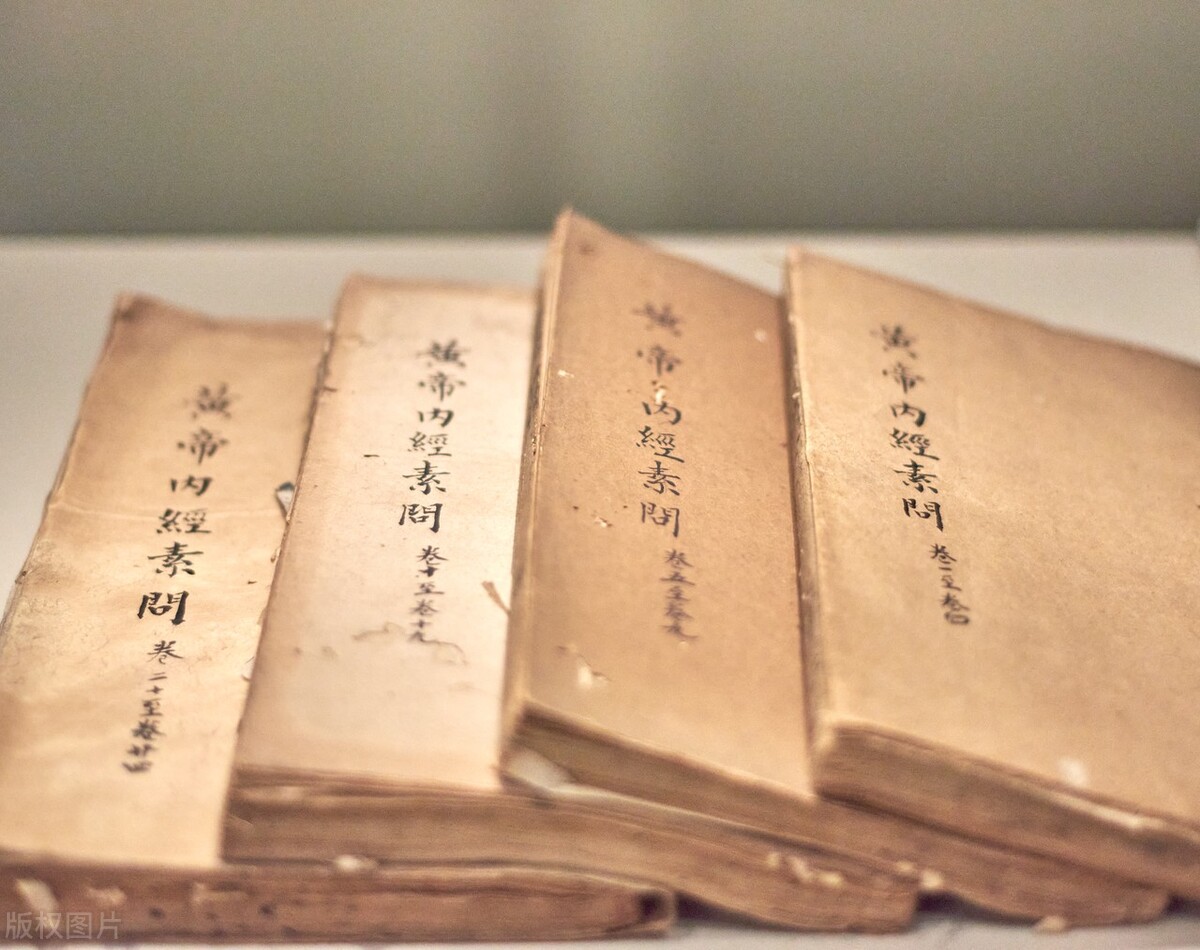 黃帝內經素問
卷一至卷四
黃帝內經素問
卷五至卷九
黃帝內經素問
卷十至卷十九
黃帝內經素問
卷二十至卷廿四
版权图片